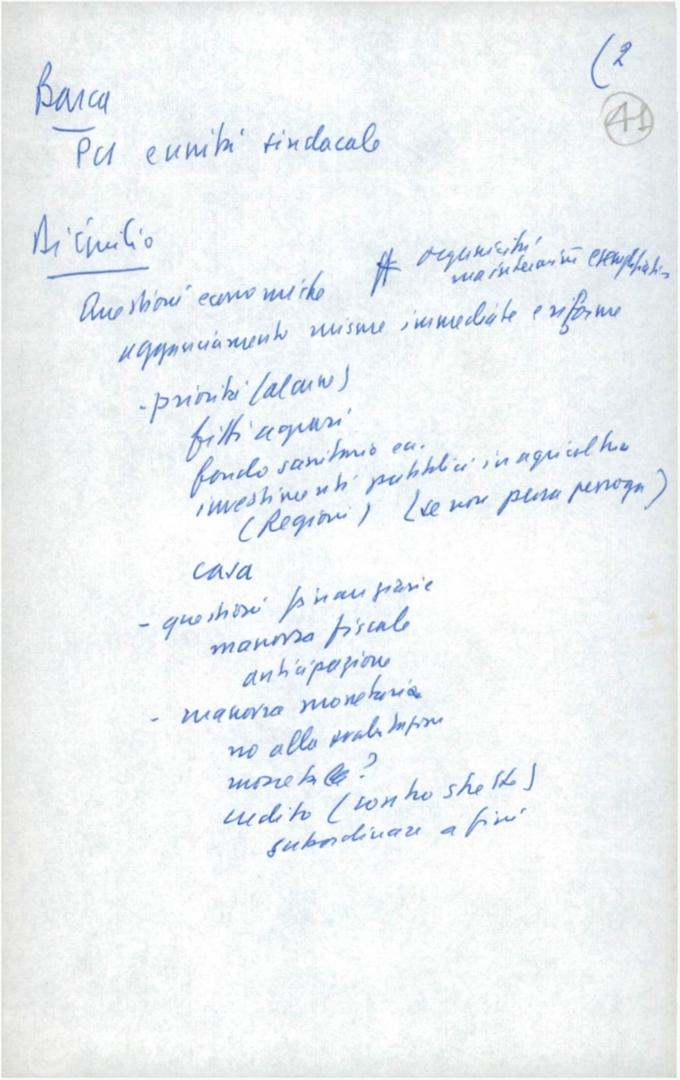 (2
41
Barca
PCI e unità sindacale
Di Giulio
Questioni economiche # organicità
ma interventi esemplificativi
agganciamento misure immediate e riforme
- priorità (alcune)
fitti agrari
fondo sanitario ecc.
investimenti pubblici in agricoltura
(Regioni) (se non pura proroga)
casa
- questioni finanziarie
manovra fiscale
anticipazione
- manovra monetaria
no alla svalutazione
moneta?
credito (contro stretta)
subordinare a fini